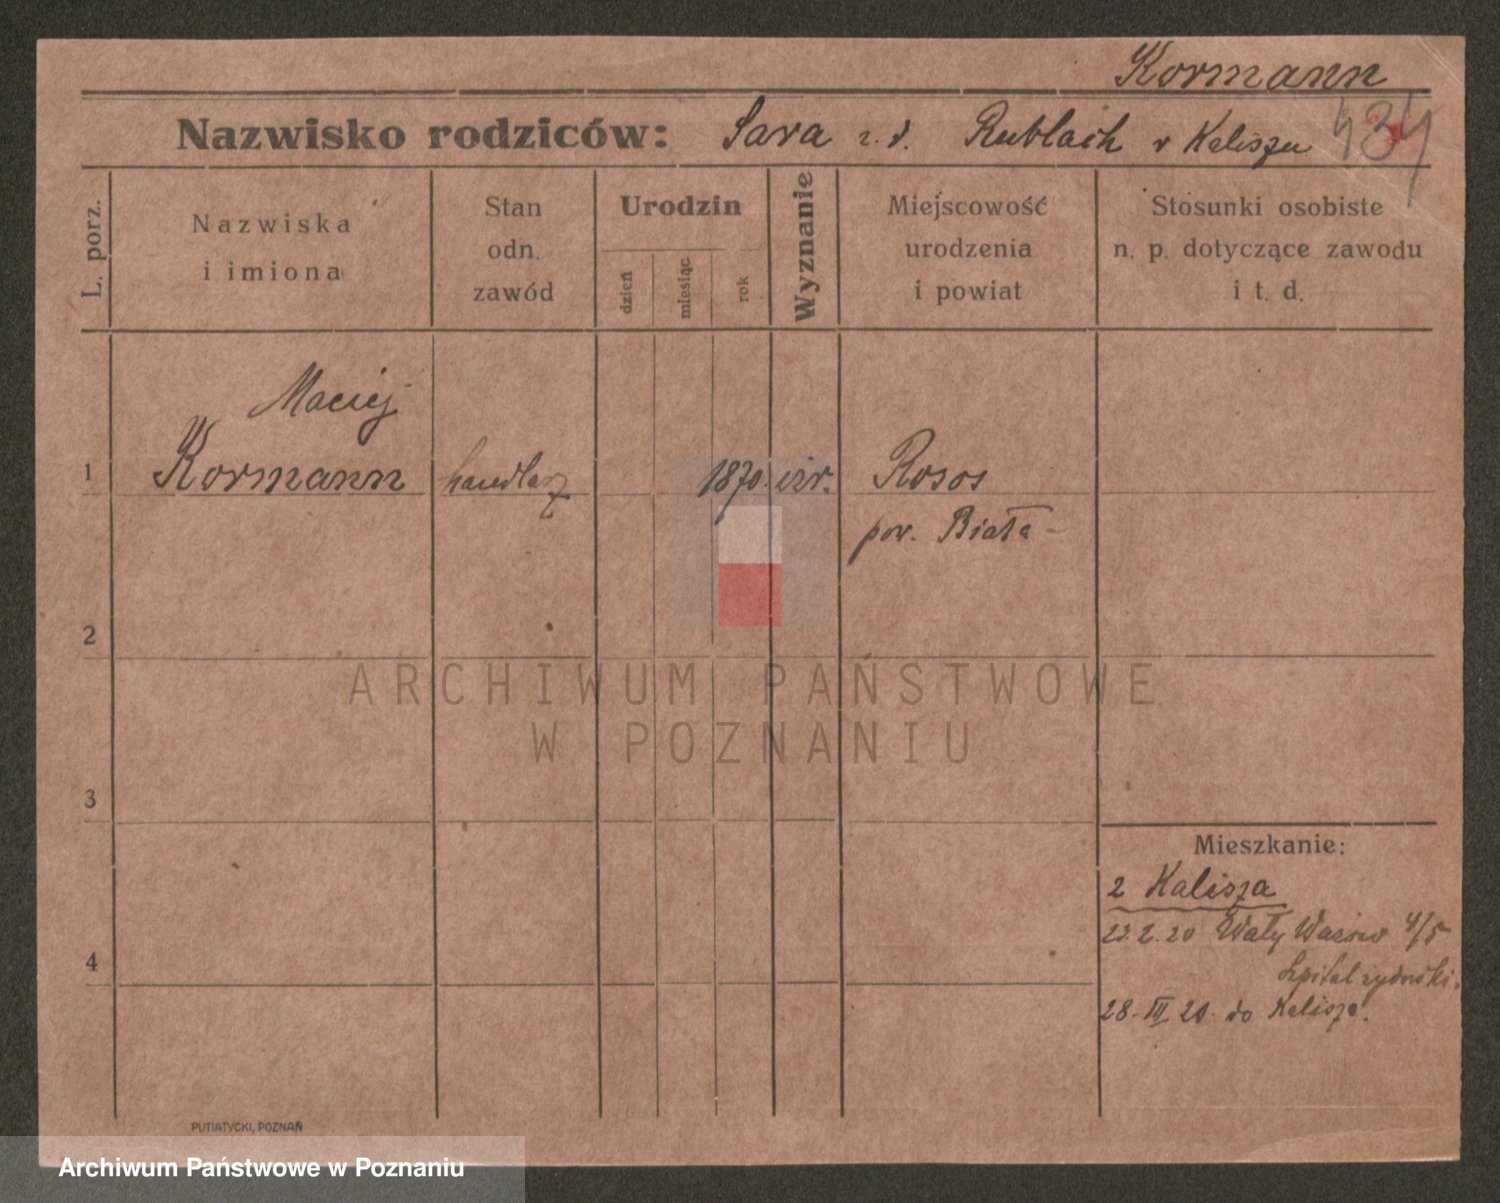 Kormann
Nazwisko rodziców: Sara z. d. Rublach w Kaliszu 434
L. porz.
Nazwiska i imiona
Stan odn. zawód
Urodzin
dzień
miesiąc
rok
Wyznanie
Miejscowość urodzenia i powiat
Stosunki osobiste n. p. dotyczące zawodu i t. d.
Maciej
1 Kormann handlarz 1870 izr. Rosos
pow. Biała
2
3
4
Mieszkanie:
z Kalisza
Wały 4/5
Szpital żydowski.
28. III 20. do Kalisza.
PUTIATYCKI, POZNAŃ
ARCHIWUM PAŃSTWOWE
W POZNANIU
Archiwum Państwowe w Poznaniu